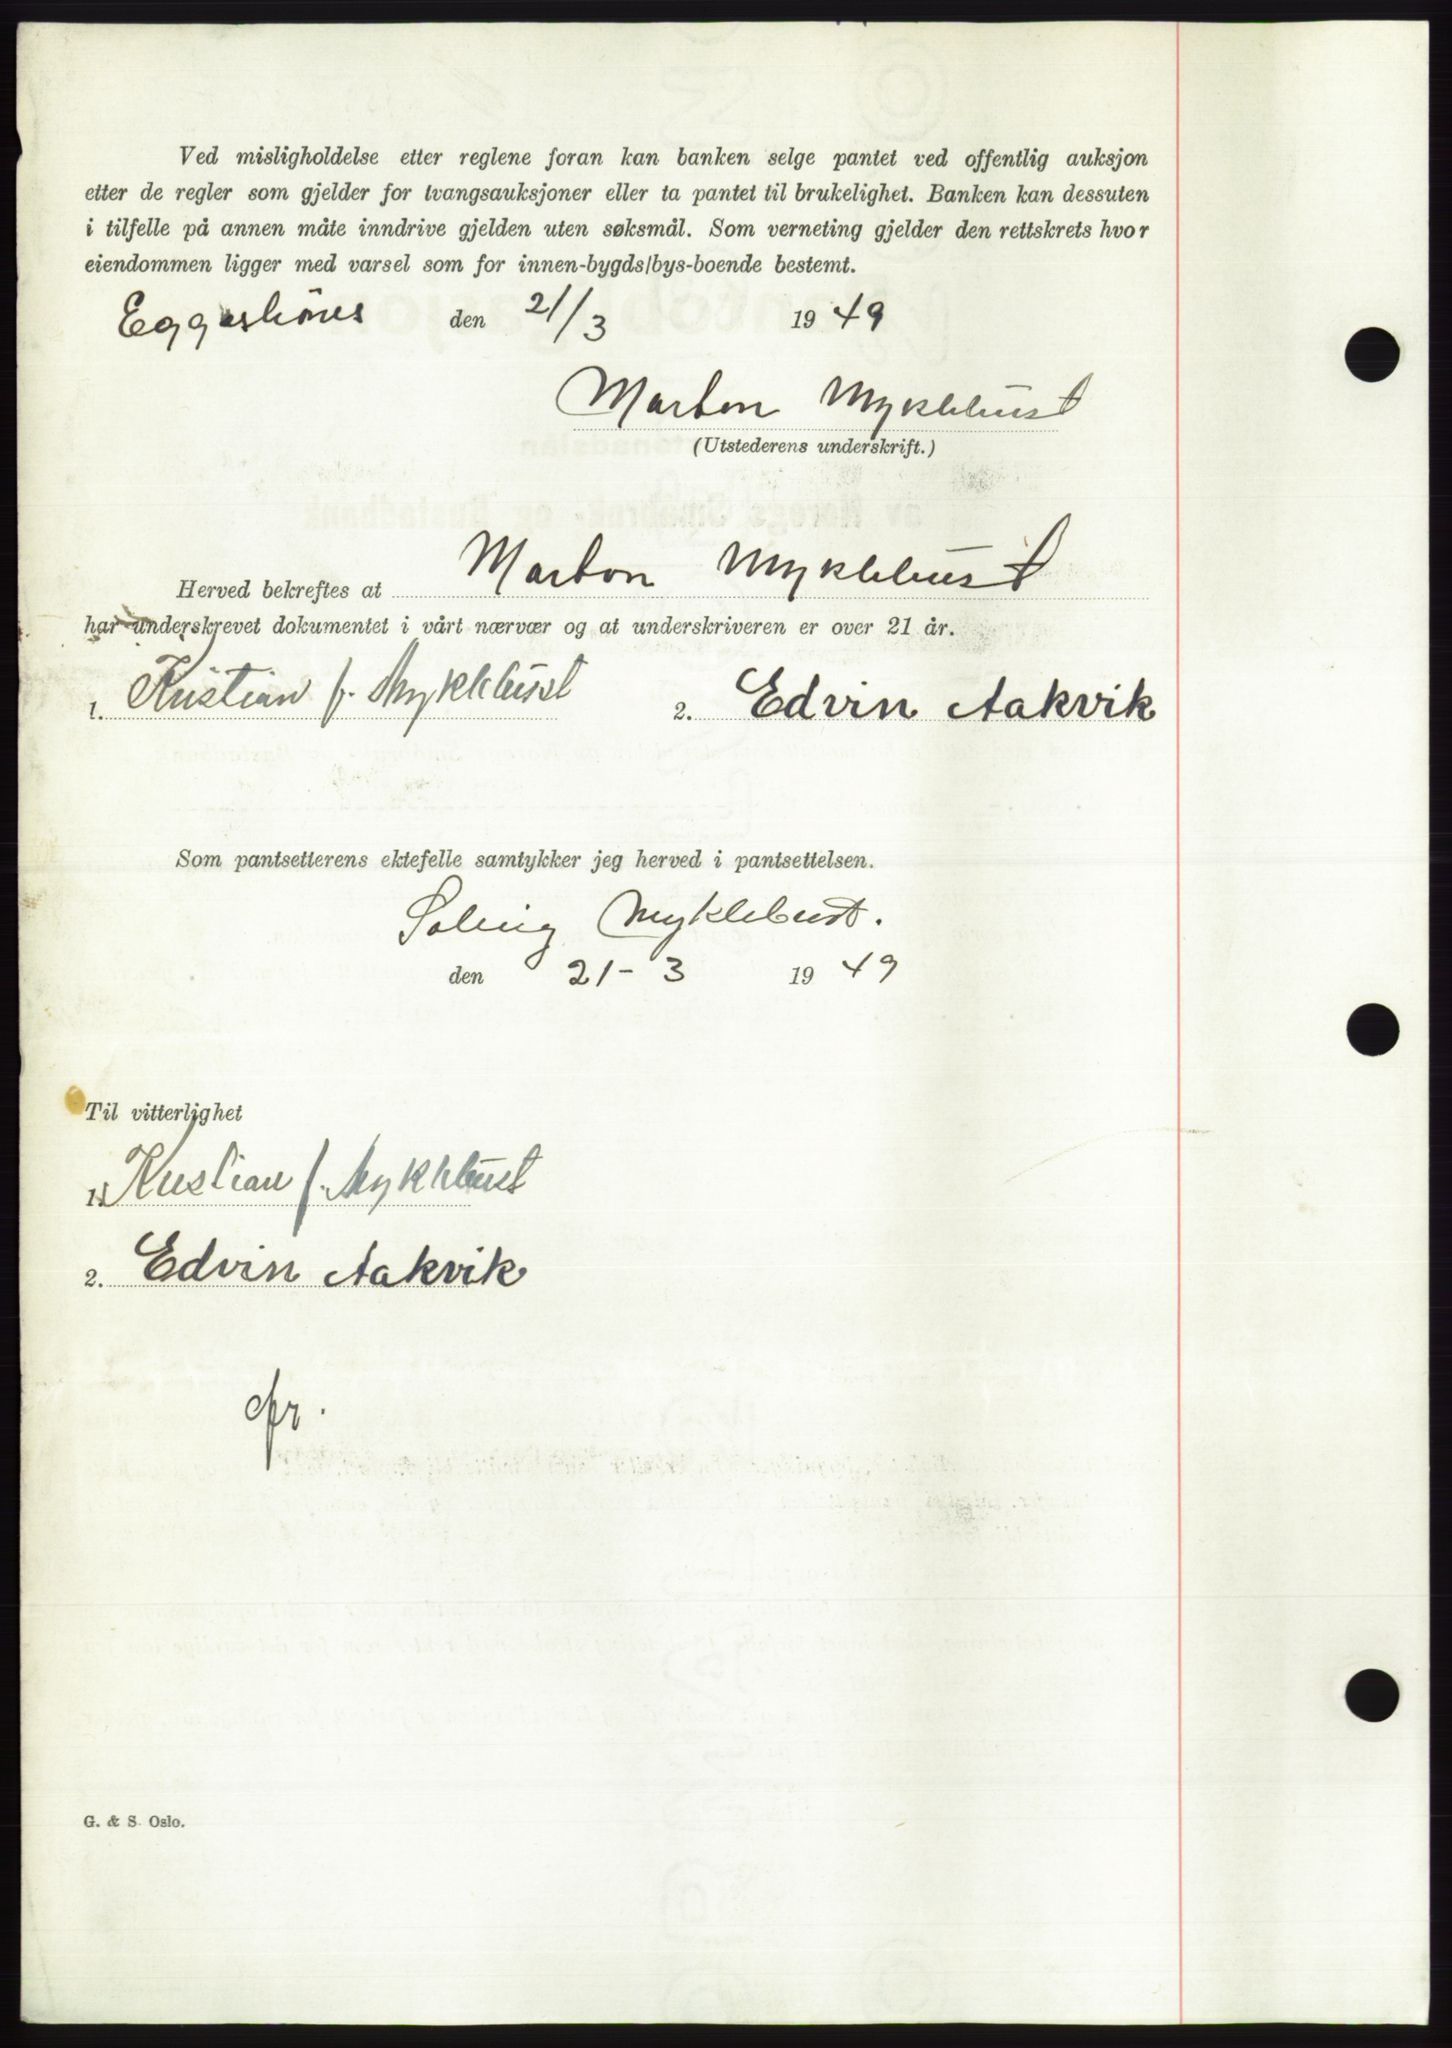 Ved misligholdelse etter reglene foran kan banken selge pantet ved offentlig auksjon
etter de regler som gjelder for tvangsauksjoner eller ta pantet til brukelighet. Banken kan dessuten
i tilfelle på annen måte inndrive gjelden uten søksmål. Som verneting gjelder den rettskrets hvor
eiendommen ligger med varsel som for innen-bygds/bys-boende bestemt.
Eggesbönes den 21/3 19 49
Marton Myklebust
(Utstederens underskrift.)
Herved bekreftes at Marton Myklebust
har underskrevet dokumentet i vårt nærvær og at underskriveren er over 21 år.
1. Kristian J. Myklebust 2. Edvin Aakvik
Som pantsetterens ektefelle samtykker jeg herved i pantsettelsen.
Solveig Myklebust.
den 21-3 19 49
Til vitterlighet
1. Kristian J. Myklebust
2. Edvin Aakvik
G. & S. Oslo.